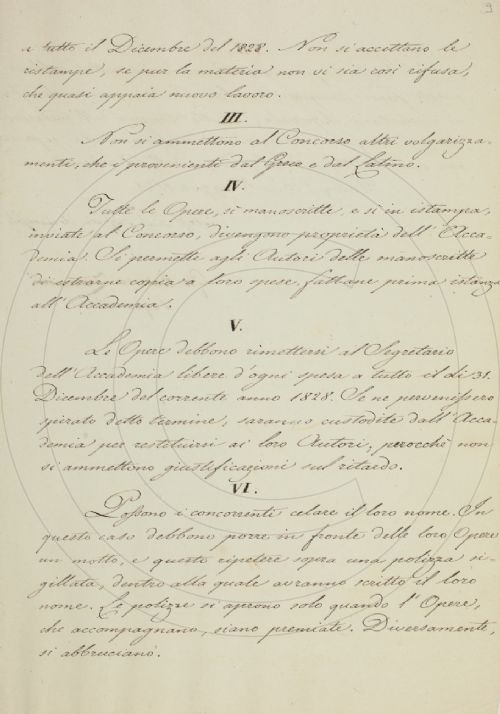 9
a tutto il Dicembre del 1828. Non si accettano le
ristampe, se pur la materia non vi sia così rifusa,
che quasi appaia nuovo lavoro.
III.
Non si ammettono al Concorso altri volgarizza-
menti, che i provenienti dal Greco e dal Latino.
IV.
Tutte le Opere, sì manoscritte, e sì in istampa,
inviate al Concorso, divengono proprietà dell'Acca-
demia. Si permette agli Autori delle manoscritte
di estrarne copia a loro spese, fattane prima istanza
all'Accademia.
V.
Le Opere debbono rimettersi al Segretario
dell'Accademia libere d'ogni spesa a tutto il dì 31.
Dicembre del corrente anno 1828. Se ne pervenissero
spirato detto termine, saranno custodite dall'Acca-
demia per restituirsi ai loro Autori, perocchè non
si ammettono giustificazioni sul ritardo.
VI.
Possono i concorrenti celare il loro nome. In
questo caso debbono porre in fronte delle loro Opere
un motto, e questo ripetere sopra una polizza si-
gillata, dentro alla quale avranno scritto il loro
nome. Le polizze si aprono solo quando l'Opere,
che accompagnano, siano premiate. Diversamente,
si abbruciano.